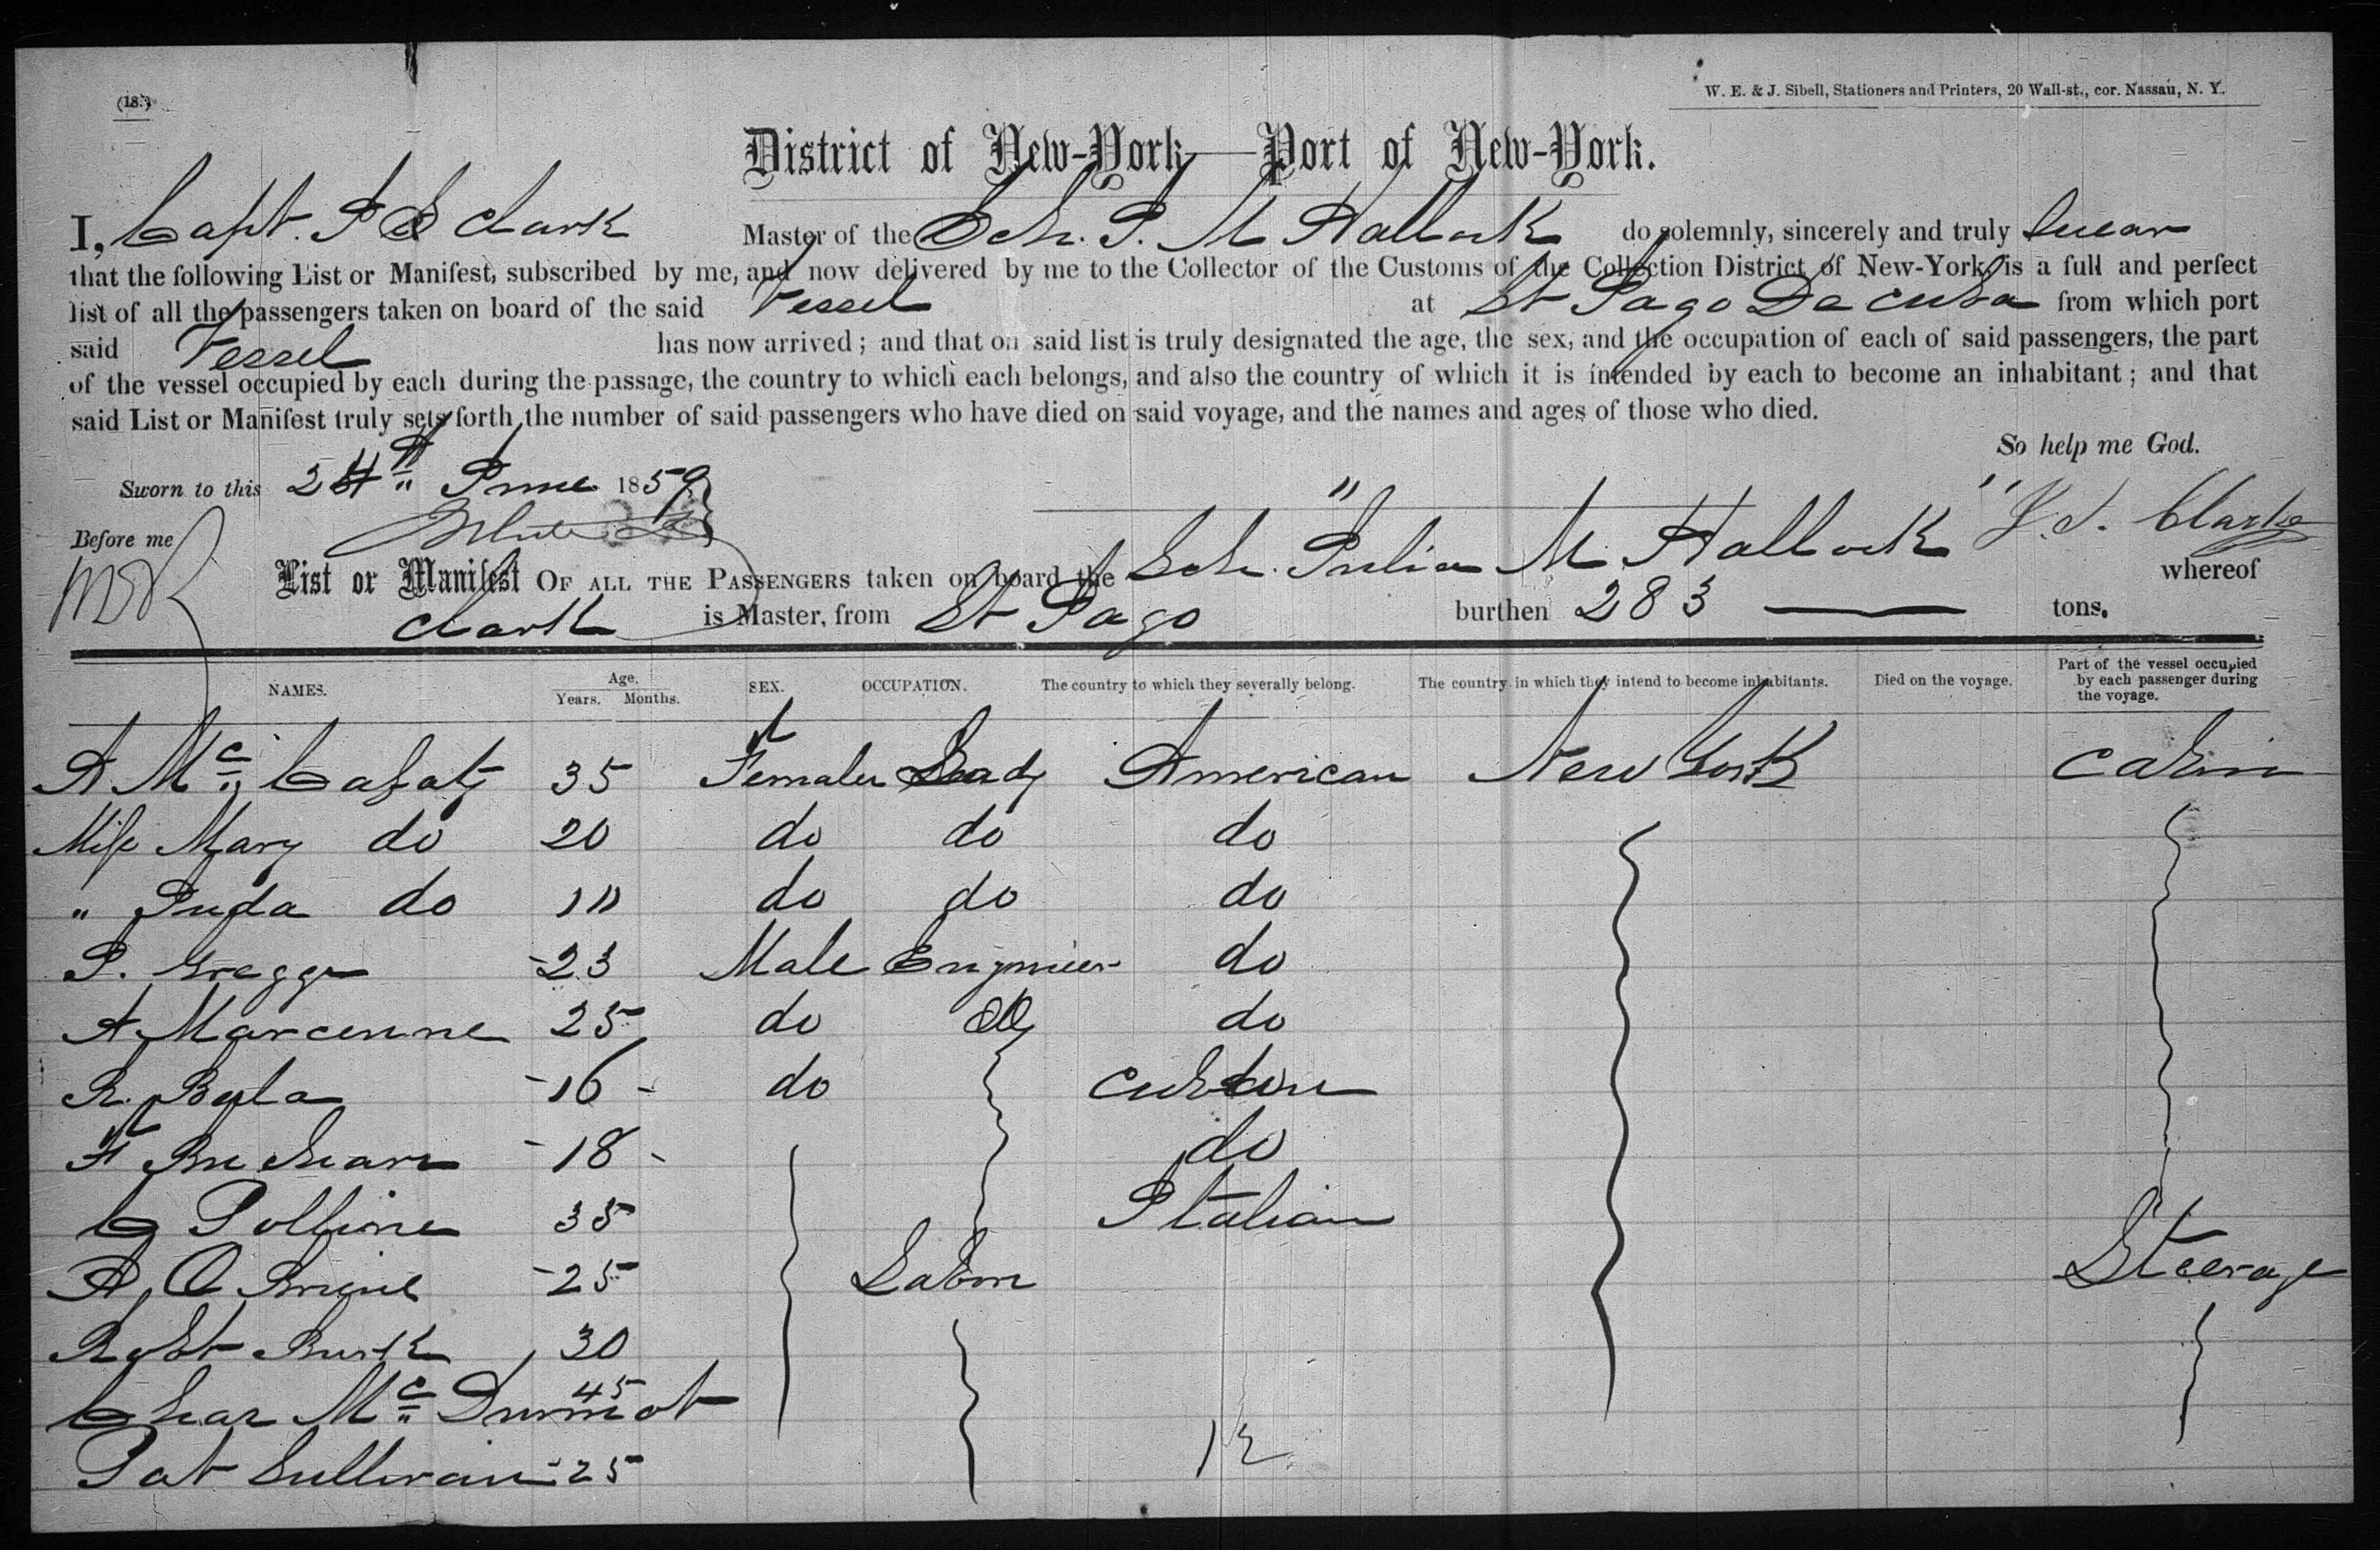 (18.)
W. E. & J. Sibell, Stationers and Printers, 20 Wall-st., cor. Nassau, N. Y.
District of New-York—Port of New-York.
I, Capt. J S Clark Master of the Sch. J. M Hallock do solemnly, sincerely and truly Swear
that the following List or Manifest, subscribed by me, and now delivered by me to the Collector of the Customs of the Collection District of New-York, is a full and perfect
list of all the passengers taken on board of the said Vessel at St Jago De Cuba from which port
said Vessel has now arrived; and that on said list is truly designated the age, the sex, and the occupation of each of said passengers, the part
of the vessel occupied by each during the passage, the country to which each belongs, and also the country of which it is intended by each to become an inhabitant; and that
said List or Manifest truly sets forth the number of said passengers who have died on said voyage, and the names and ages of those who died.
So help me God.
Sworn to this 24th June 1859
Before me
J. S. Clark
List or Manifest OF ALL THE PASSENGERS taken on board the Sch. Julia M. Hallock whereof
Clark is Master, from St Jago burthen 283 tons.
NAMES. Age. Years. Months. SEX. OCCUPATION. The country to which they severally belong. The country in which they intend to become inhabitants. Died on the voyage. Part of the vessel occupied by each passenger during the voyage.
A Mc Cafaty 35 Female Lady American New York Cabin
Miss Mary do 20 do do do
" do 10 do do do
J. Gregg 23 Male Engineer do
A Marcenne 25 do do
R. 16 do Cuban
F 18 do
C 35 Italian
A, O Briene 25 Labor Steerage
Robt Burk 30
Chas Mc Durmot 45
Pat Sullivan 25
12